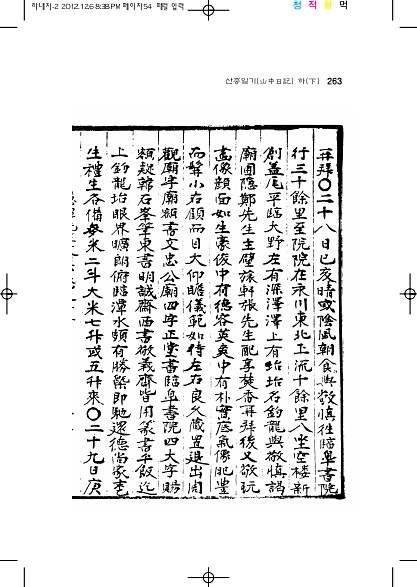 하내지-2 2012.12.6 8:38 PM 페이지54 패럴 입력
청 적 황 먹
산중일기(山中日記) 하(下) 263
再拜○二十八日己亥晴或陰風朝食與敬愼往臨皐書院
行三十餘里至院院在永川東北上流十餘里八坐空樓新
創蓋瓦平臨大野左有深澤澤上有坮坮名釣龍與敬愼謁
廟圃隱鄭先生主壁旅軒張先生配享焚香再拜後又敬玩
畫像顔面如生豪俊中有德容英爽中有朴實底氣像肥豊
而䯻小右顧而目大仰瞻儀範如侍左右良久藏置退出開
觀廟宇廟額書文忠公廟四字正堂書臨皐書院四大字勝
額疑韓石峯筆東書明誠齋西書敬義齋皆用篆書午飯迄
上釣龍坮眼界曠朗俯臨潭水頗有勝槩卽馳還德尙家
生禮生各備每米二斗大米七升或五升來○二十九日庚